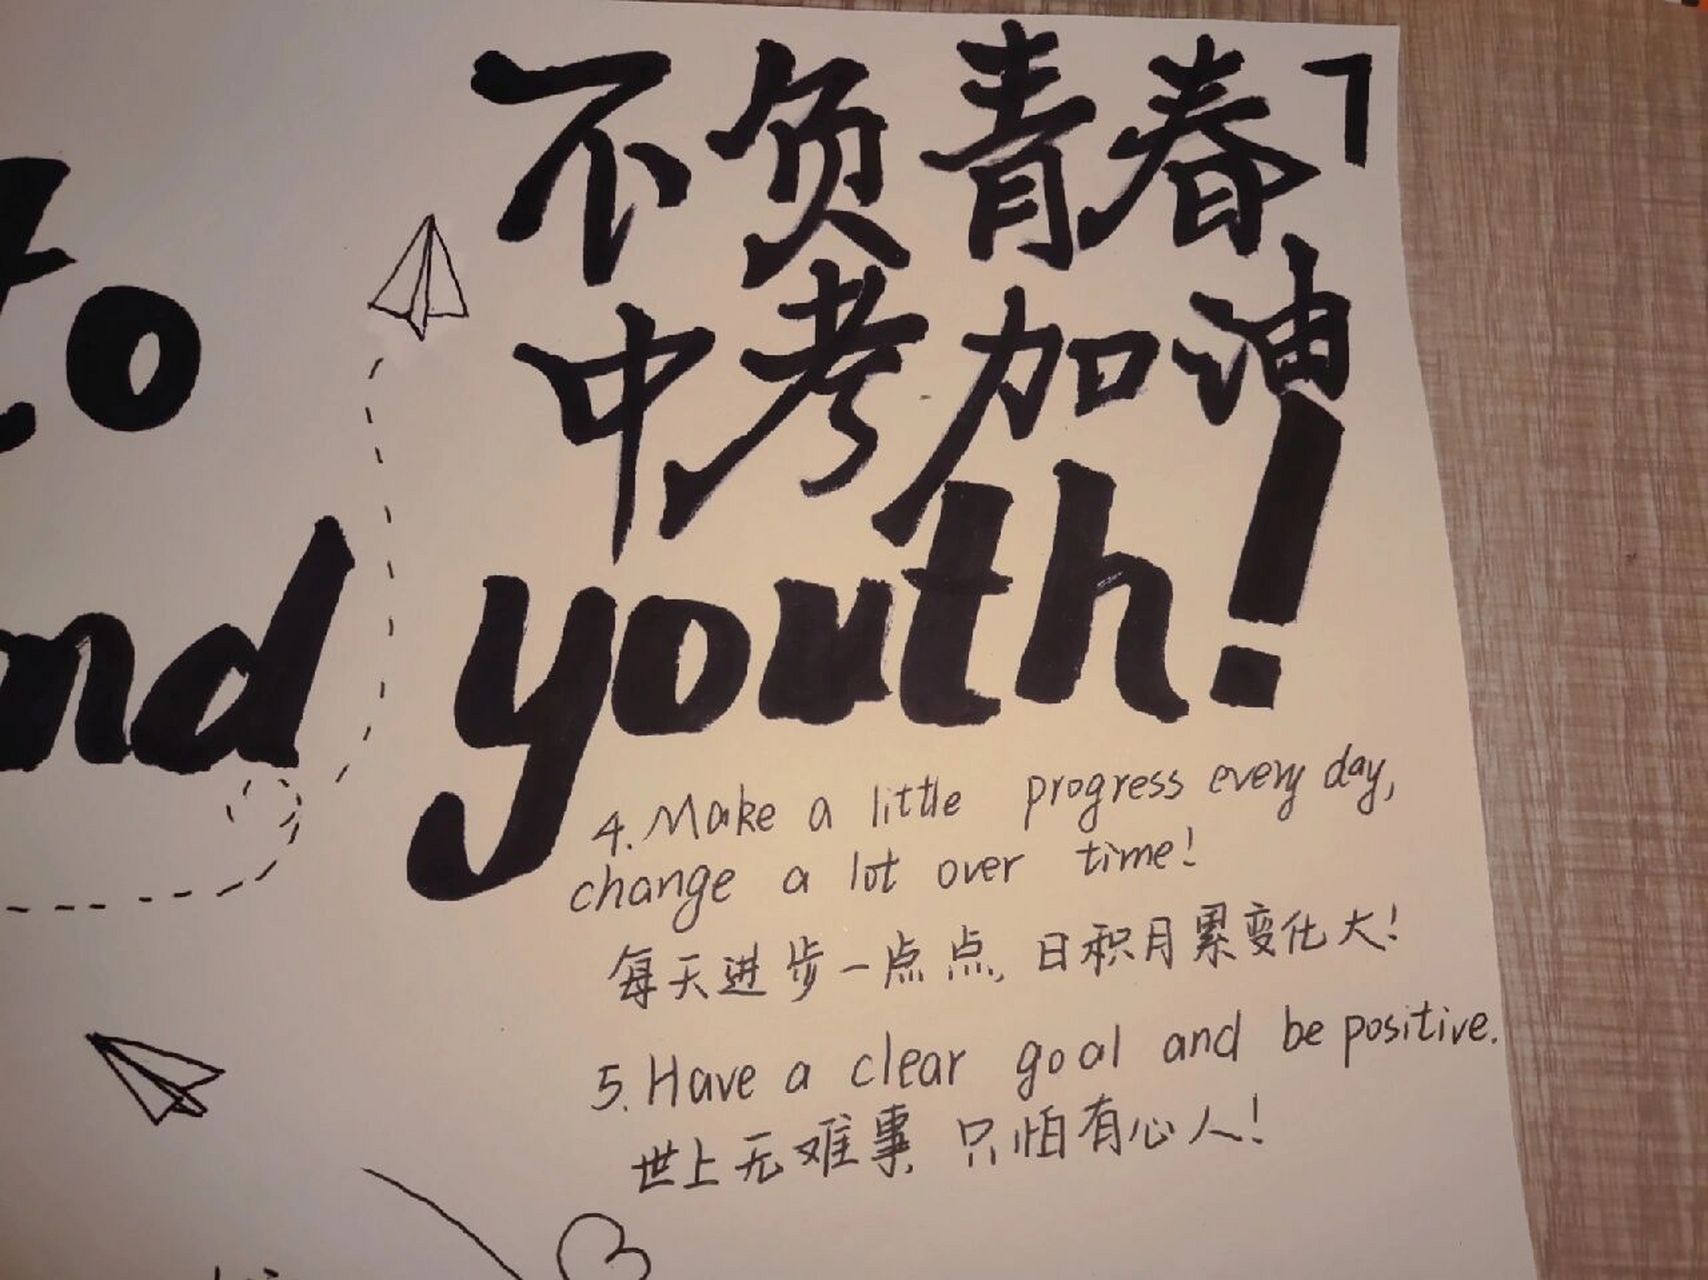 不负青春
中考加油
to
nd youth!
4. Make a little progress every day,
change a lot over time!
每天进步一点点, 日积月累变化大!
5. Have a clear goal and be positive.
世上无难事, 只怕有心人!